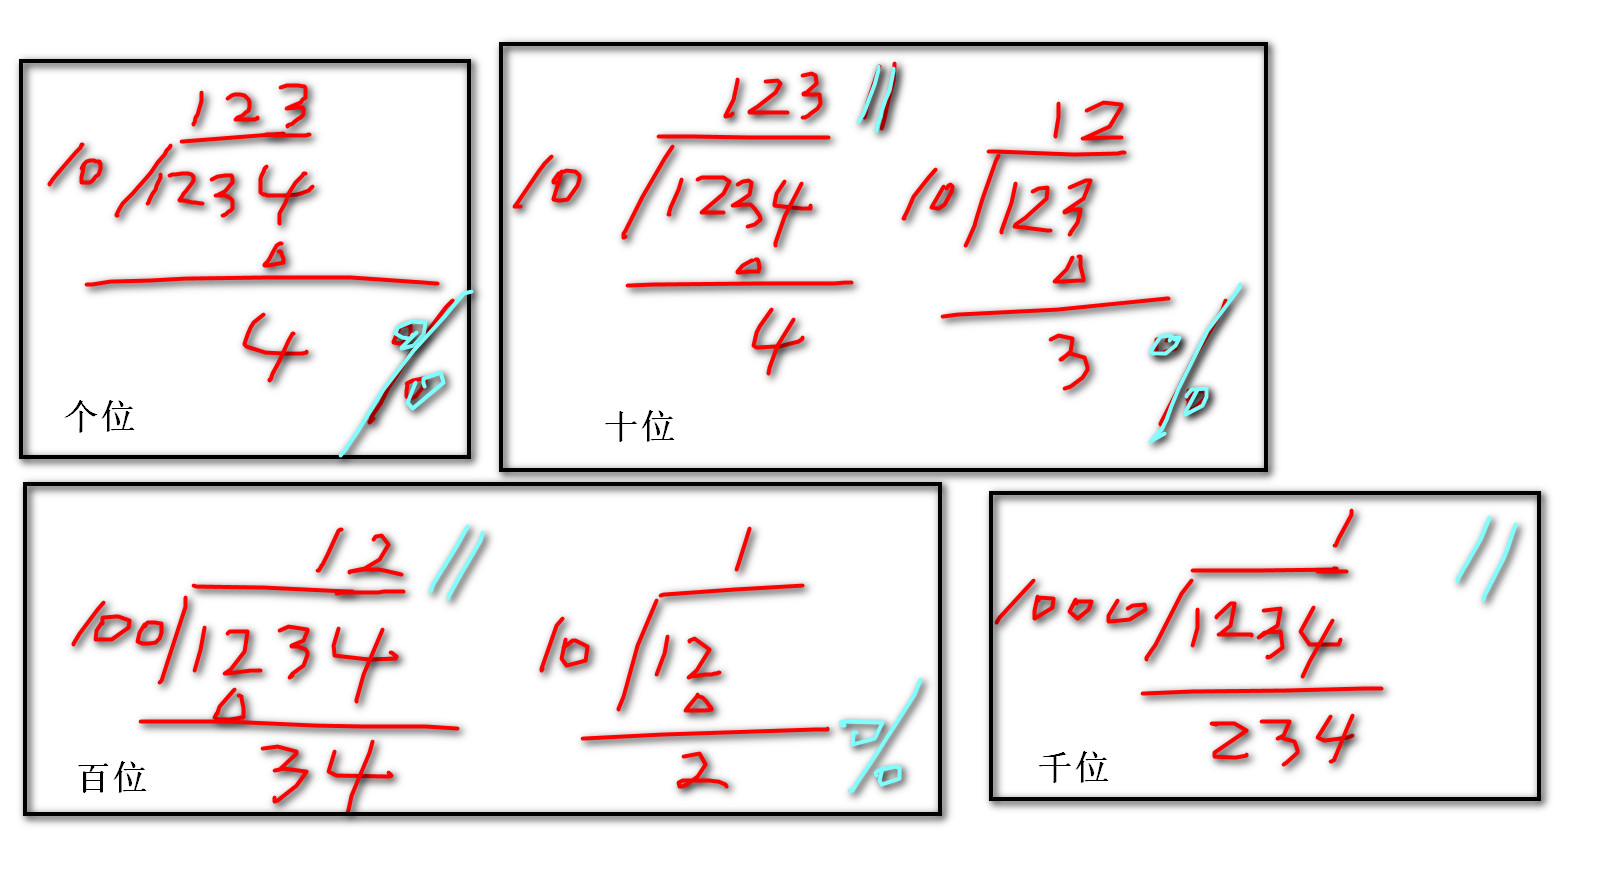 123
10 1234
0
4 %
个位
123 //
10 1234
0
4
12
10 123
0
3 %
十位
12 //
100 1234
0
34
1
10 12
0
2 %
百位
1 //
1000 1234
234
千位